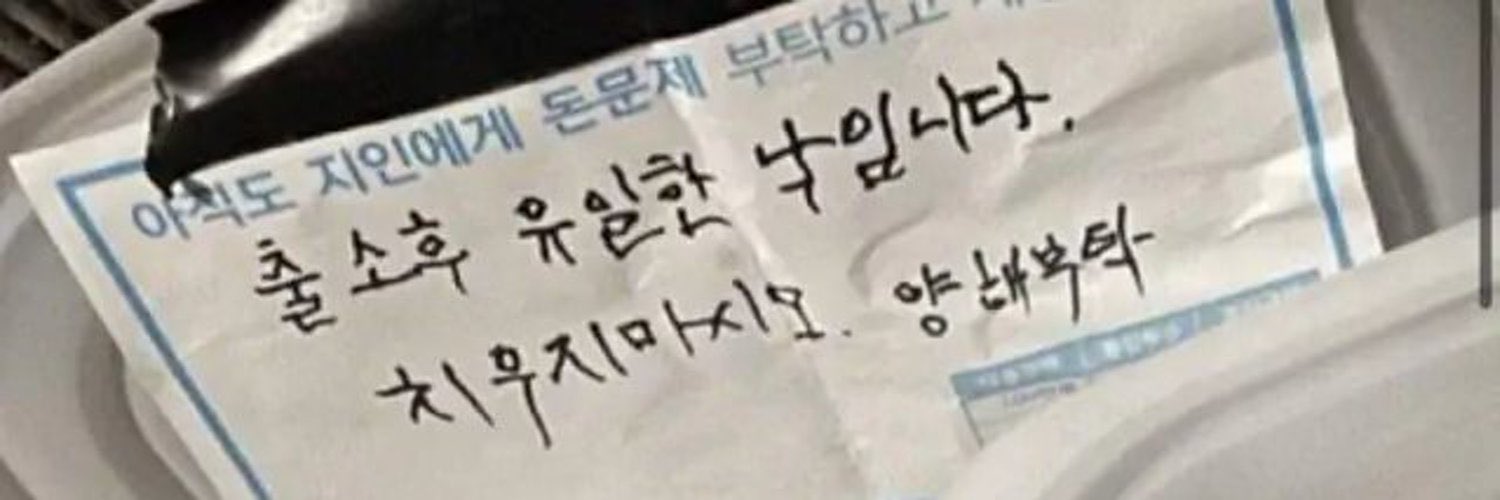 아직도 지인에게 돈문제 부탁하고
출소후 유일한 낙입니다.
치우지마시오. 양해부탁